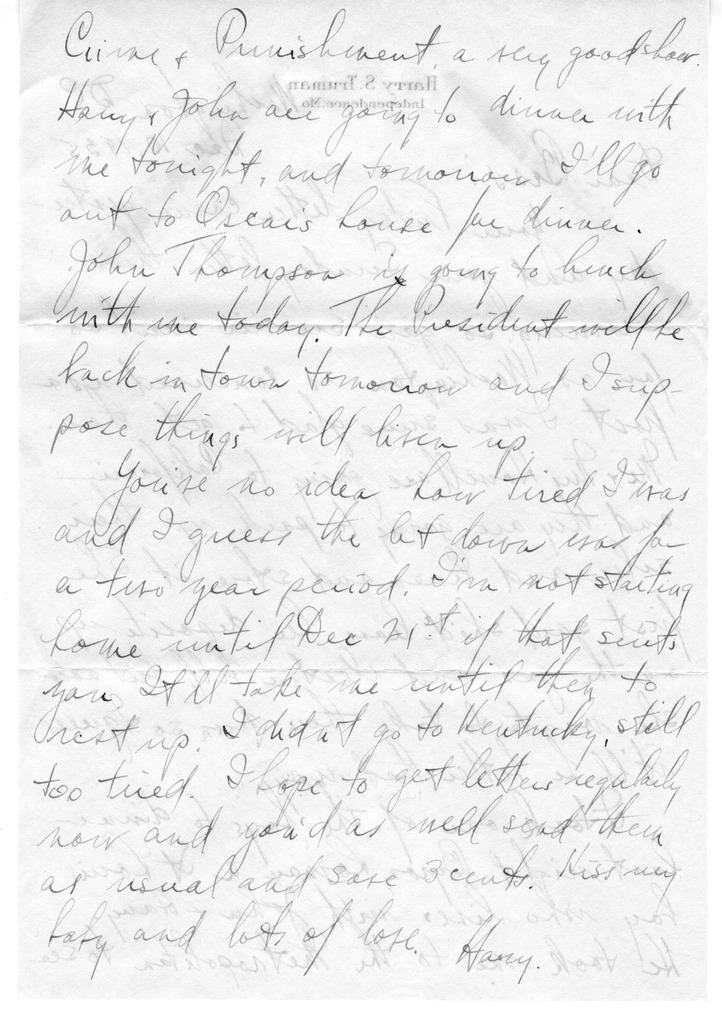 Crime & Punishment, a very good show.
Harry S. Truman
Independence, Mo.
Harry & John are going to dinner with
me tonight, and tomorrow I'll go
out to Oscar's house for dinner.
John Thompson is going to lunch
with me today. The President will be
back in town tomorrow and I sup-
pose things will liven up.
You've no idea how tired I was
and I guess the let down was for
a two year period. I'm not starting
home until Dec 21st if that suits
you. It'll take me until then to
rest up. I didn't go to Kentucky, still
too tired. I hope to get letters regularly
now and you'd as well send them
as usual and save 3 cents. Kiss my
baby and lots of love. Harry.